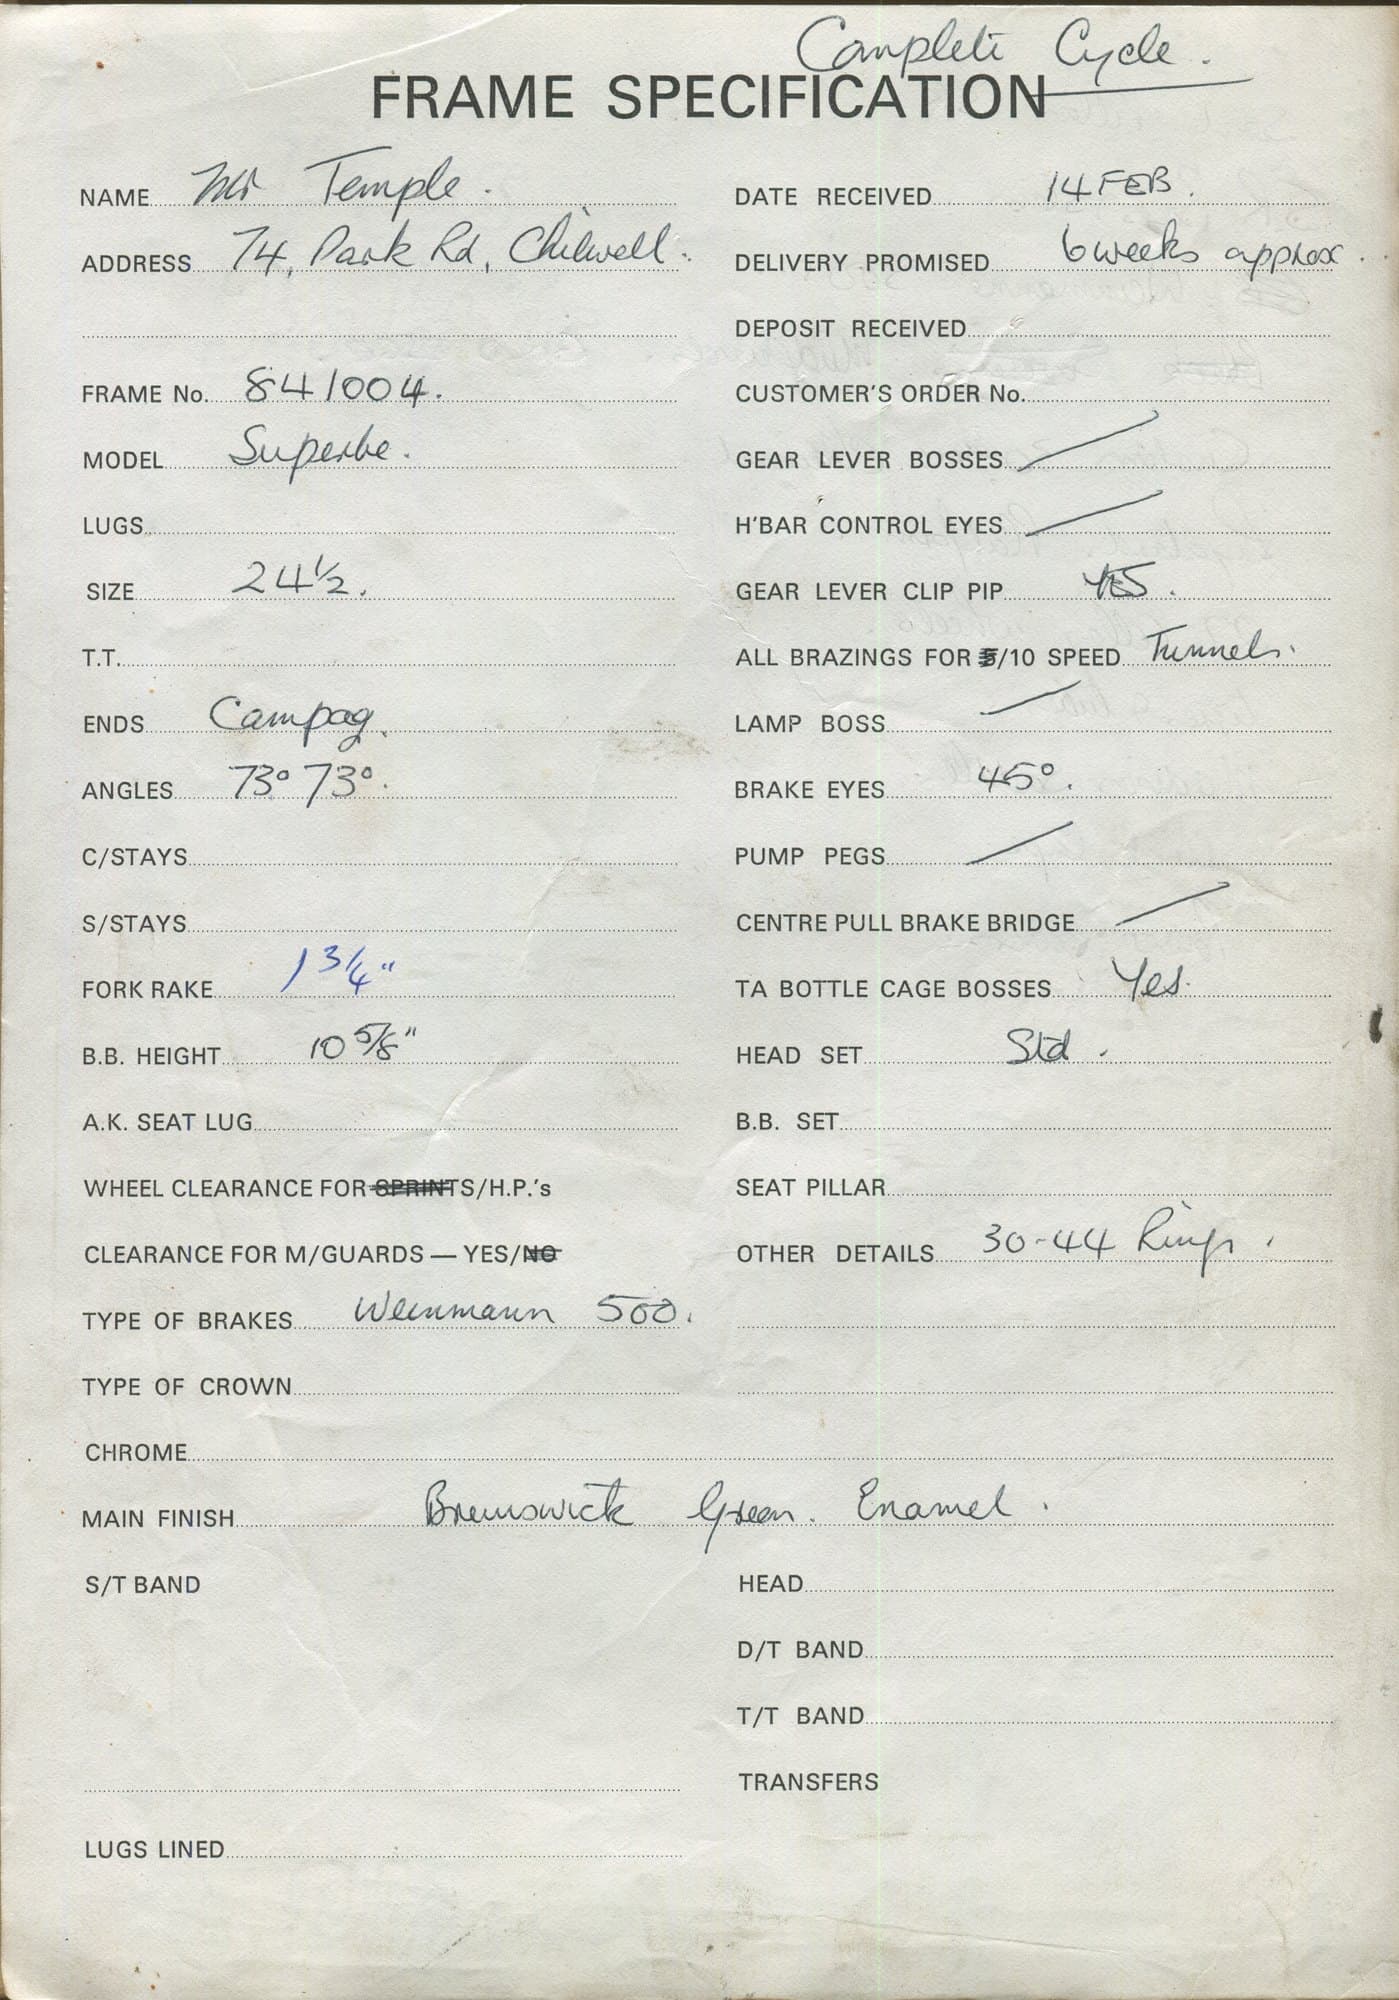 Complete Cycle.
FRAME SPECIFICATION
NAME Mr Temple.
ADDRESS 74, Park Rd, Chilwell.
FRAME No. 841004.
MODEL Superbe.
LUGS
SIZE 24½.
T.T.
ENDS Campag.
ANGLES 73° 73°.
C/STAYS
S/STAYS
FORK RAKE 1 3/4"
B.B. HEIGHT 10 5/8"
A.K. SEAT LUG
WHEEL CLEARANCE FOR SPRINTS/H.P.'s
CLEARANCE FOR M/GUARDS — YES/NO
TYPE OF BRAKES Weinmann 500.
TYPE OF CROWN
DATE RECEIVED 14 FEB.
DELIVERY PROMISED 6 weeks approx.
DEPOSIT RECEIVED
CUSTOMER'S ORDER No.
GEAR LEVER BOSSES /
H'BAR CONTROL EYES /
GEAR LEVER CLIP PIP YES.
ALL BRAZINGS FOR 5/10 SPEED Tunnels.
LAMP BOSS /
BRAKE EYES 45°.
PUMP PEGS /
CENTRE PULL BRAKE BRIDGE /
TA BOTTLE CAGE BOSSES Yes.
HEAD SET Std.
B.B. SET
SEAT PILLAR
OTHER DETAILS 30-44 Rings.
CHROME
MAIN FINISH Brunswick Green. Enamel.
S/T BAND
HEAD
D/T BAND
T/T BAND
TRANSFERS
LUGS LINED